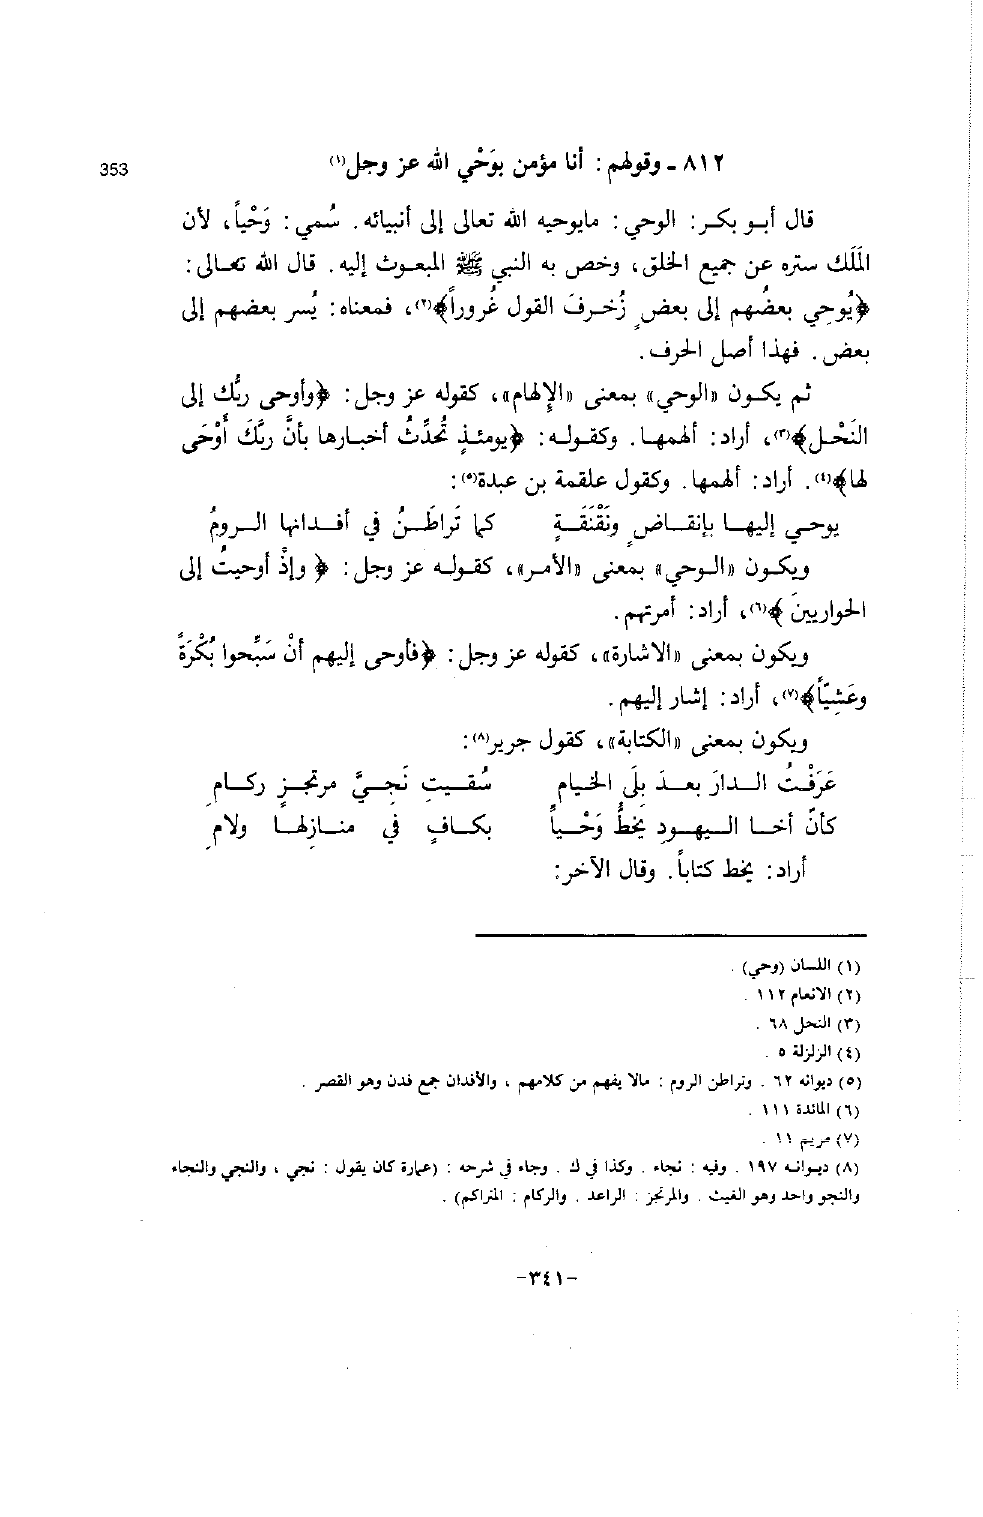 353
٨١٢ - وقولهم : أنا مؤمن بوَحْي الله عز وجل(١)
قال أبو بكر : الوحي : مايوحيه الله تعالى إلى أنبيائه . سُمي : وَحْياً ، لأن
المَلَك ستره عن جميع الخلق ، وخص به النبي ﷺ المبعوث إليه . قال الله تعالى :
﴿يُوحِي بعضُهم إلى بعضٍ زُخرفَ القول غُروراً﴾(٢) ، فمعناه : يُسر بعضهم إلى
بعض . فهذا أصل الحرف .
ثم يكون «الوحي» بمعنى «الإلهام» ، كقوله عز وجل : ﴿وأوحى ربُّك إلى
النَحْل﴾(٣) ، أراد : ألهمها . وكقوله : ﴿يومئذٍ تُحدِّثُ أخبارها بأنَّ ربَّكَ أَوْحَى
لها﴾(٤) . أراد : ألهمها . وكقول علقمة بن عبدة(٥) :
يوحي إليها بإنقاضٍ ونَقْنَقَةٍ كما تَراطَنُ في أفدانها الرومُ
ويكون «الوحي» بمعنى «الأمر» ، كقوله عز وجل : ﴿ وإذْ أوحيتُ إلى
الحواريينَ ﴾(٦) ، أراد : أمرتهم .
ويكون بمعنى «الاشارة» ، كقوله عز وجل : ﴿فأوحى إليهم أنْ سَبِّحوا بُكْرَةً
وعَشِيّاً﴾(٧) ، أراد : إشار إليهم .
ويكون بمعنى «الكتابة» ، كقول جرير(٨) :
عَرَفْتُ الدارَ بعدَ بلَى الخيامِ سُقيتِ نَجيَّ مرتجزٍ ركامِ
كأنّ أخا اليهودِ يخطُّ وَحْياً بكافٍ في منازلها ولامِ
أراد : يخط كتاباً . وقال الآخر :
(١) اللسان (وحي) .
(٢) الانعام ١١٢ .
(٣) النحل ٦٨ .
(٤) الزلزلة ٥ .
(٥) ديوانه ٦٢ . وتراطن الروم : مالا يفهم من كلامهم ، والأفدان جمع فدن وهو القصر .
(٦) المائدة ١١١ .
(٧) مريم ١١ .
(٨) ديوانه ١٩٧ . وفيه : نجاء . وكذا في ك . وجاء في شرحه : (عمارة كان يقول : نجي ، والنجي والنجاء
والنجو واحد وهو الغيث . والمرتجز : الراعد . والركام : المتراكم) .
-٣٤١-